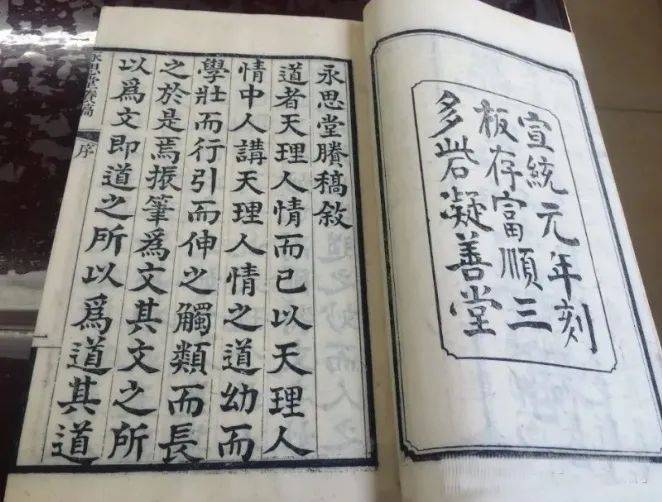 宣統元年刻
板存富順三
多砦凝善堂
永思堂賸稿敘
道者天理人情而已以天理人
情中人講天理人情之道幼而
學壯而行引而伸之觸類而長
之於是焉振筆爲文其文之所
以爲文即道之所以爲道其道
永思堂賸稿
序